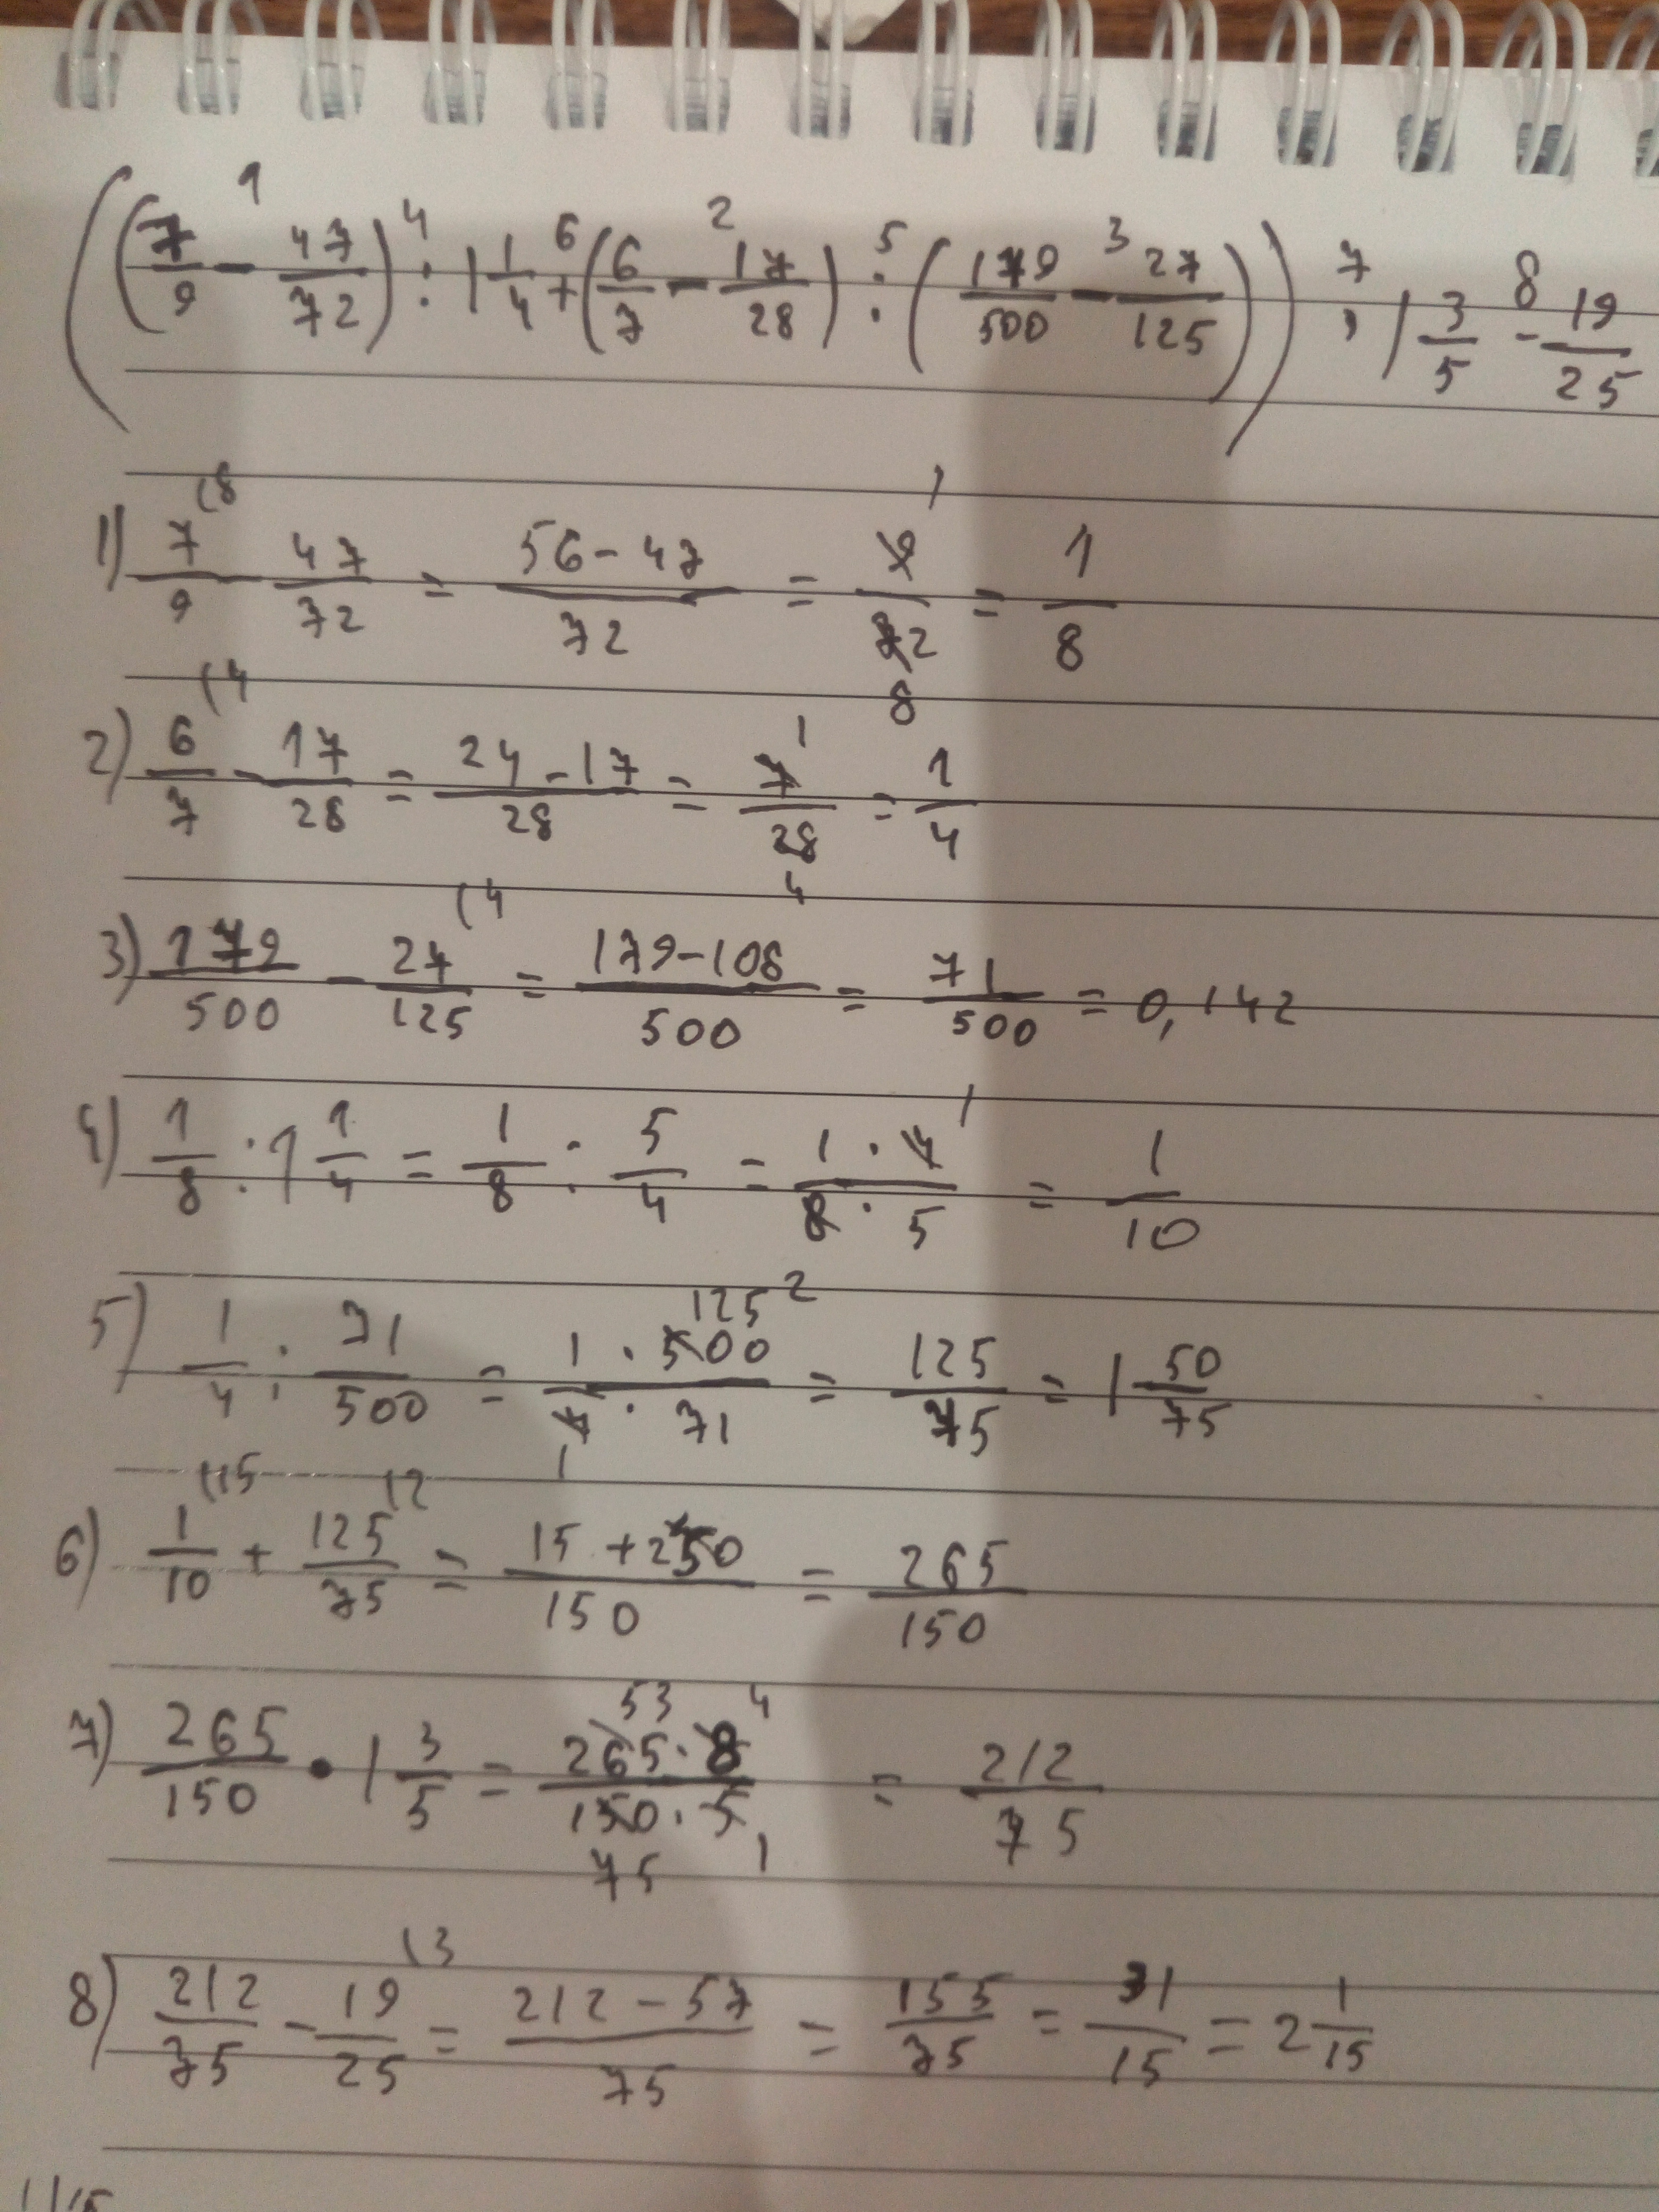 ((7/9 - 47/72) : 1 1/4 + (6/7 - 17/28) : (179/500 - 27/125)) · 1 3/5 - 19/25
1) 7/9 - 47/72 = (56-47)/72 = 9/72 = 1/8
2) 6/7 - 17/28 = (24-17)/28 = 7/28 = 1/4
3) 179/500 - 27/125 = (179-108)/500 = 71/500 = 0,142
4) 1/8 : 1 1/4 = 1/8 : 5/4 = (1·4)/(8·5) = 1/10
5) 1/4 : 71/500 = (1·500)/(4·71) = 125/75 = 1 50/75
6) 1/10 + 125/75 = (15+250)/150 = 265/150
7) 265/150 · 1 3/5 = (265·8)/(150·5) = 212/75
8) 212/75 - 19/25 = (212-57)/75 = 155/75 = 31/15 = 2 1/15